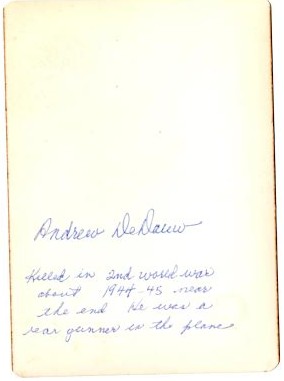 Andrew DeDauw
Killed in 2nd world war
about 1944-45 near
the end He was a
rear gunner in the plane